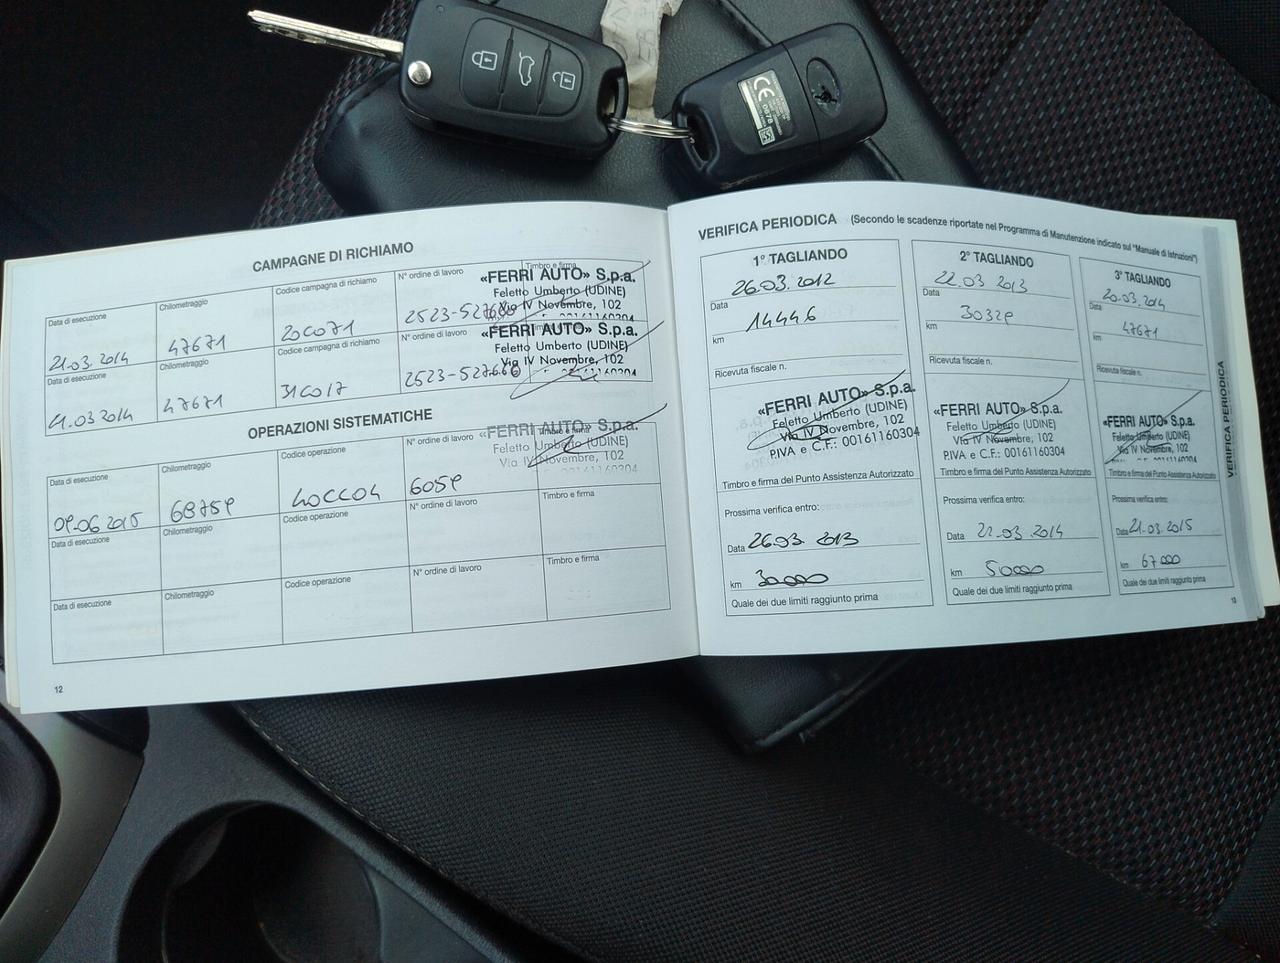 CAMPAGNE DI RICHIAMO
Data di esecuzione
Chilometraggio
Codice campagna di richiamo
N° ordine di lavoro
Timbro e firma
21.03.2014
47671
20C071
2523-
«FERRI AUTO» S.p.a.
Feletto Umberto (UDINE)
Via IV Novembre, 102
Data di esecuzione
Chilometraggio
Codice campagna di richiamo
N° ordine di lavoro
21.03.2014
47671
31C017
2523-
«FERRI AUTO» S.p.a.
Feletto Umberto (UDINE)
Via IV Novembre, 102
OPERAZIONI SISTEMATICHE
Data di esecuzione
Chilometraggio
Codice operazione
N° ordine di lavoro
Timbro e firma
09.06.2015
68759
40CC04
6059
«FERRI AUTO» S.p.a.
Feletto Umberto (UDINE)
Via IV Novembre, 102
00161160304
Data di esecuzione
Chilometraggio
Codice operazione
N° ordine di lavoro
Timbro e firma
Data di esecuzione
Chilometraggio
Codice operazione
N° ordine di lavoro
Timbro e firma
12
VERIFICA PERIODICA (Secondo le scadenze riportate nel Programma di Manutenzione indicato sul "Manuale di Istruzioni")
1° TAGLIANDO
26.03.2012
Data
14446
km
Ricevuta fiscale n.
«FERRI AUTO» S.p.a.
Feletto Umberto (UDINE)
Via IV Novembre, 102
P.IVA e C.F.: 00161160304
Timbro e firma del Punto Assistenza Autorizzato
Prossima verifica entro:
Data 26.03.2013
km 30000
Quale dei due limiti raggiunto prima
2° TAGLIANDO
22.03.2013
Data
30329
km
Ricevuta fiscale n.
«FERRI AUTO» S.p.a.
Feletto Umberto (UDINE)
Via IV Novembre, 102
P.IVA e C.F.: 00161160304
Timbro e firma del Punto Assistenza Autorizzato
Prossima verifica entro:
Data 22.03.2014
km 50000
Quale dei due limiti raggiunto prima
3° TAGLIANDO
20.03.2014
Data
47671
km
Ricevuta fiscale n.
«FERRI AUTO» S.p.a.
Feletto Umberto (UDINE)
Via IV Novembre, 102
Timbro e firma del Punto Assistenza Autorizzato
Prossima verifica entro:
Data 21.03.2015
km 67000
Quale dei due limiti raggiunto prima
VERIFICA PERIODICA
13
CE 0678